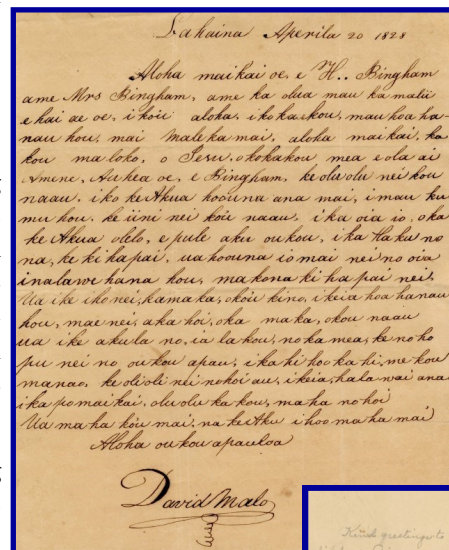 Lahaina Aperila 20 1828
Aloha maikai oe, e H.. Bingham
ame Mrs Bingham, ame ka olua mau kamalii
e hai ae oe, i kou aloha, i ko kakou, mau hoa ha-
nau hou, mai Maleka mai, aloha maikai, ka
kou ma loko, o Iesu, o ko kakou mea e ola ai
Amene, Auhea oe, e Bingham, ke olu olu nei kou
naau, i ko ke Akua hoouna ana mai, i mau ku
mu hou, ke iini nei koie naau, i ka oia io, o ka
ke Akua olelo, e pule aku oukou, i ka Haku no
na, ke kihapai, ua hoouna io mai nei no oia
i na lawehana hou, ma kona kihapai nei.
Ua ike iho nei, ka maka, o koie kino, i keia hoahanau
hou, mae nei, aka hoi, o ka maka, o kou naau
ua ike aku la no, ia lakou, no ka mea, ke noho
pu nei no oukou apau, i kahi hookahi, me kou
manao, ke olioli nei no hoi au, i keia, halawai ana
i ka pomaikai, olu olu kakou, maha no hoi
Ua maha koie mai, na ke Aku i hoomaha mai
Aloha oukou apauloa
David Malo
Kind greetings to